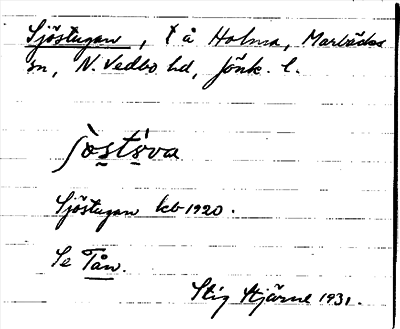 Sjöstugan, t å Holma, Marbäcks
sn, N. Vedbo hd, Jönk. l.
Sjöstugan kb 1920.
Se Tån.
Stig Hjärne 1931.